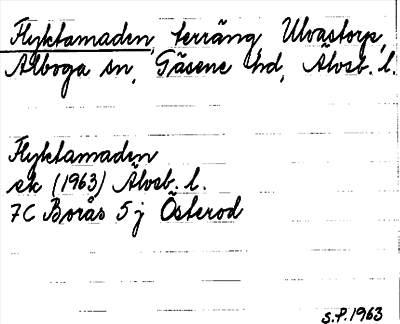 Flyktamaden, terräng, Ulvastorp,
Alboga sn, Gäsene hd, Älvsb. l.
Flyktamaden
ek (1963) Älvsb. l.
7C Borås 5j Österod
S.P. 1963